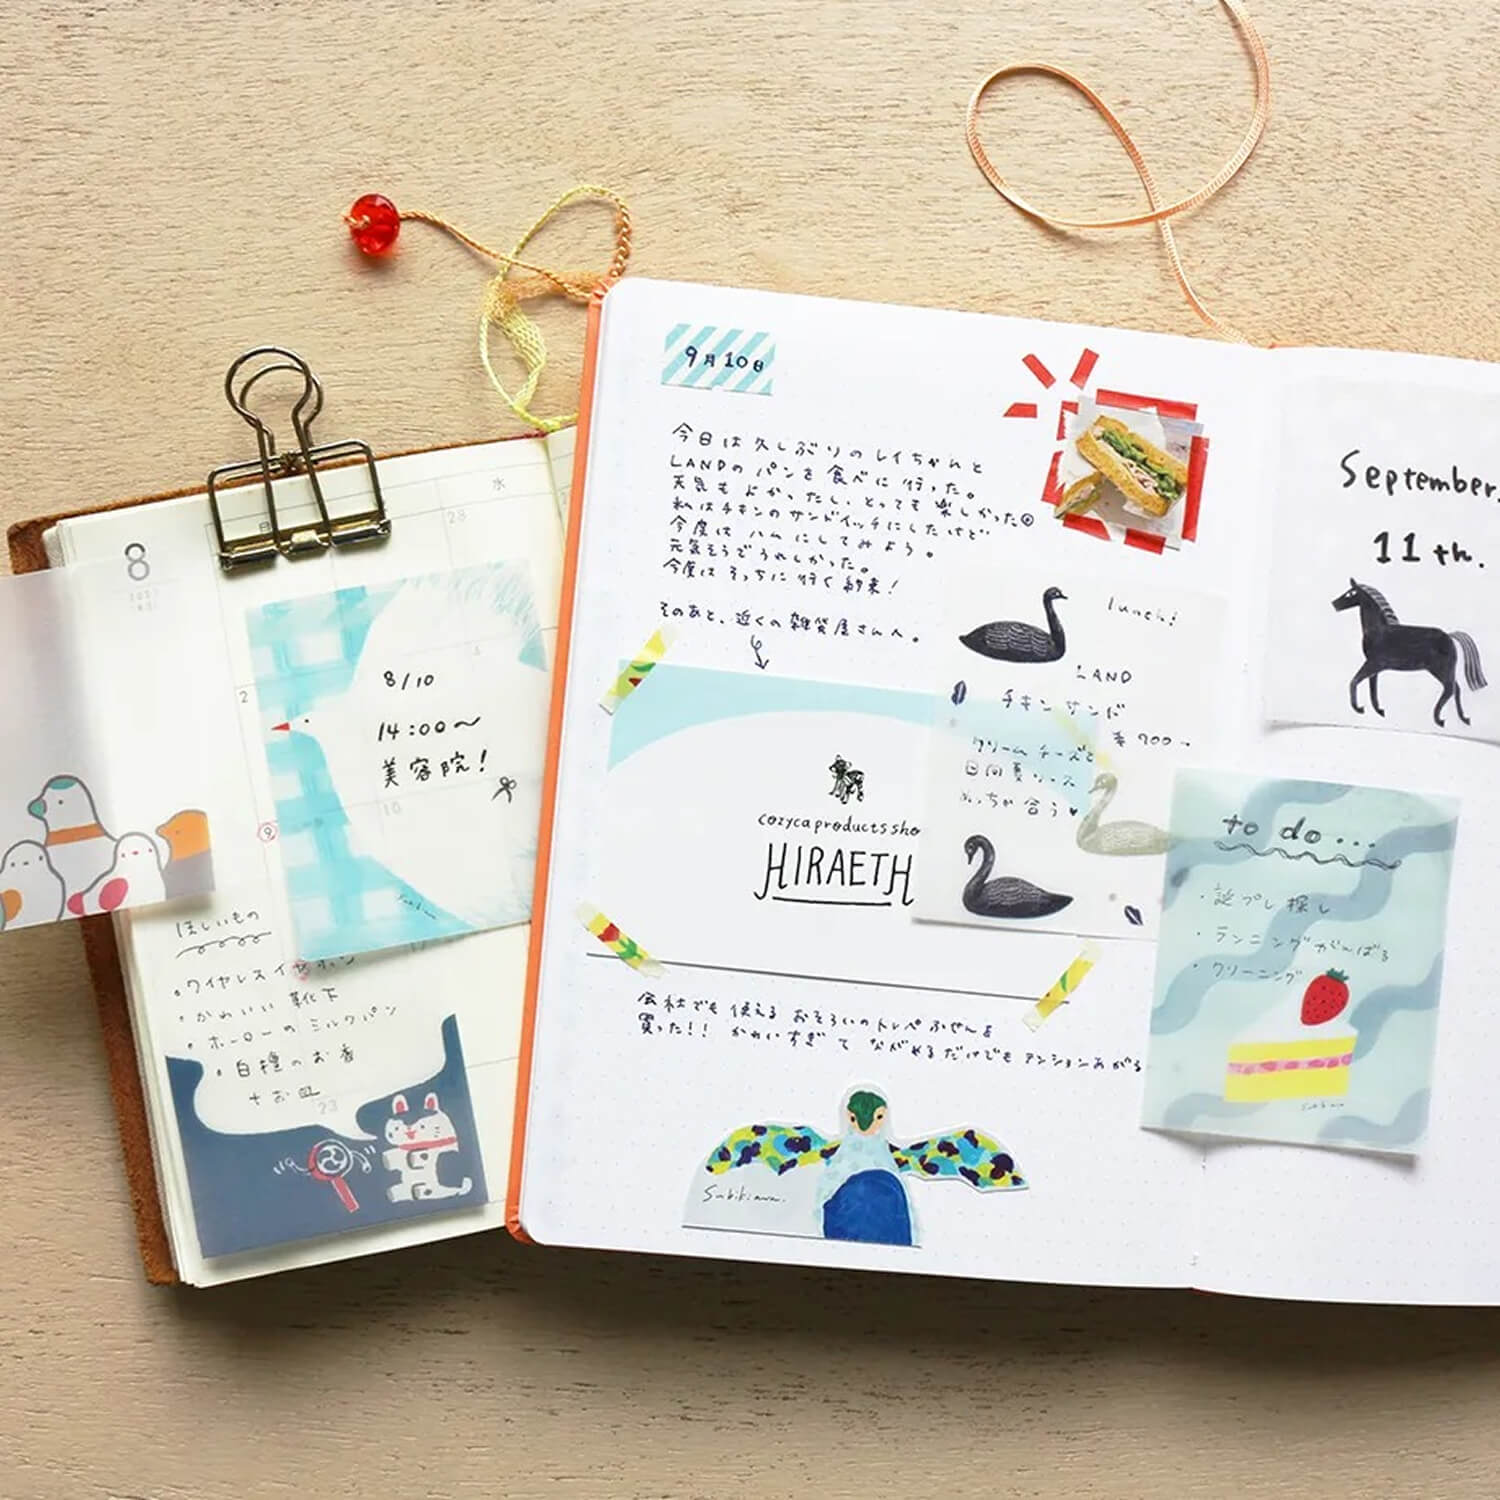 8
日
水
28
2
4
9
10
23
8/10
14:00〜
美容院!
ほしいもの
・ワイヤレスイヤホン
・かわいい靴下
・ホーローのミルクパン
・白檀のお香
+お皿
9月10日
今日は久しぶりのレイちゃんと
LANDのパンを食べに行った。
天気もよかったし、とっても楽しかった
私はチキンのサンドイッチにしたけど
今度はハムにしてみよう。
元気そうでうれしかった。
今度はそっちに行く約束!
そのあと、近くの雑貨屋さんへ。
cozyca products sho
HIRAETH
lunch!
LAND
チキンサンド
¥700-
クリームチーズと
日向夏ソース
めっちゃ合う♥
会社でも使えるおそろいのトレペふせんを
買った!! かわいすぎてながめるだけでもテンションあがる
Subikiawa.
September.
11th.
to do...
・誕プレ探し
・ランニングがんばる
・クリーニング